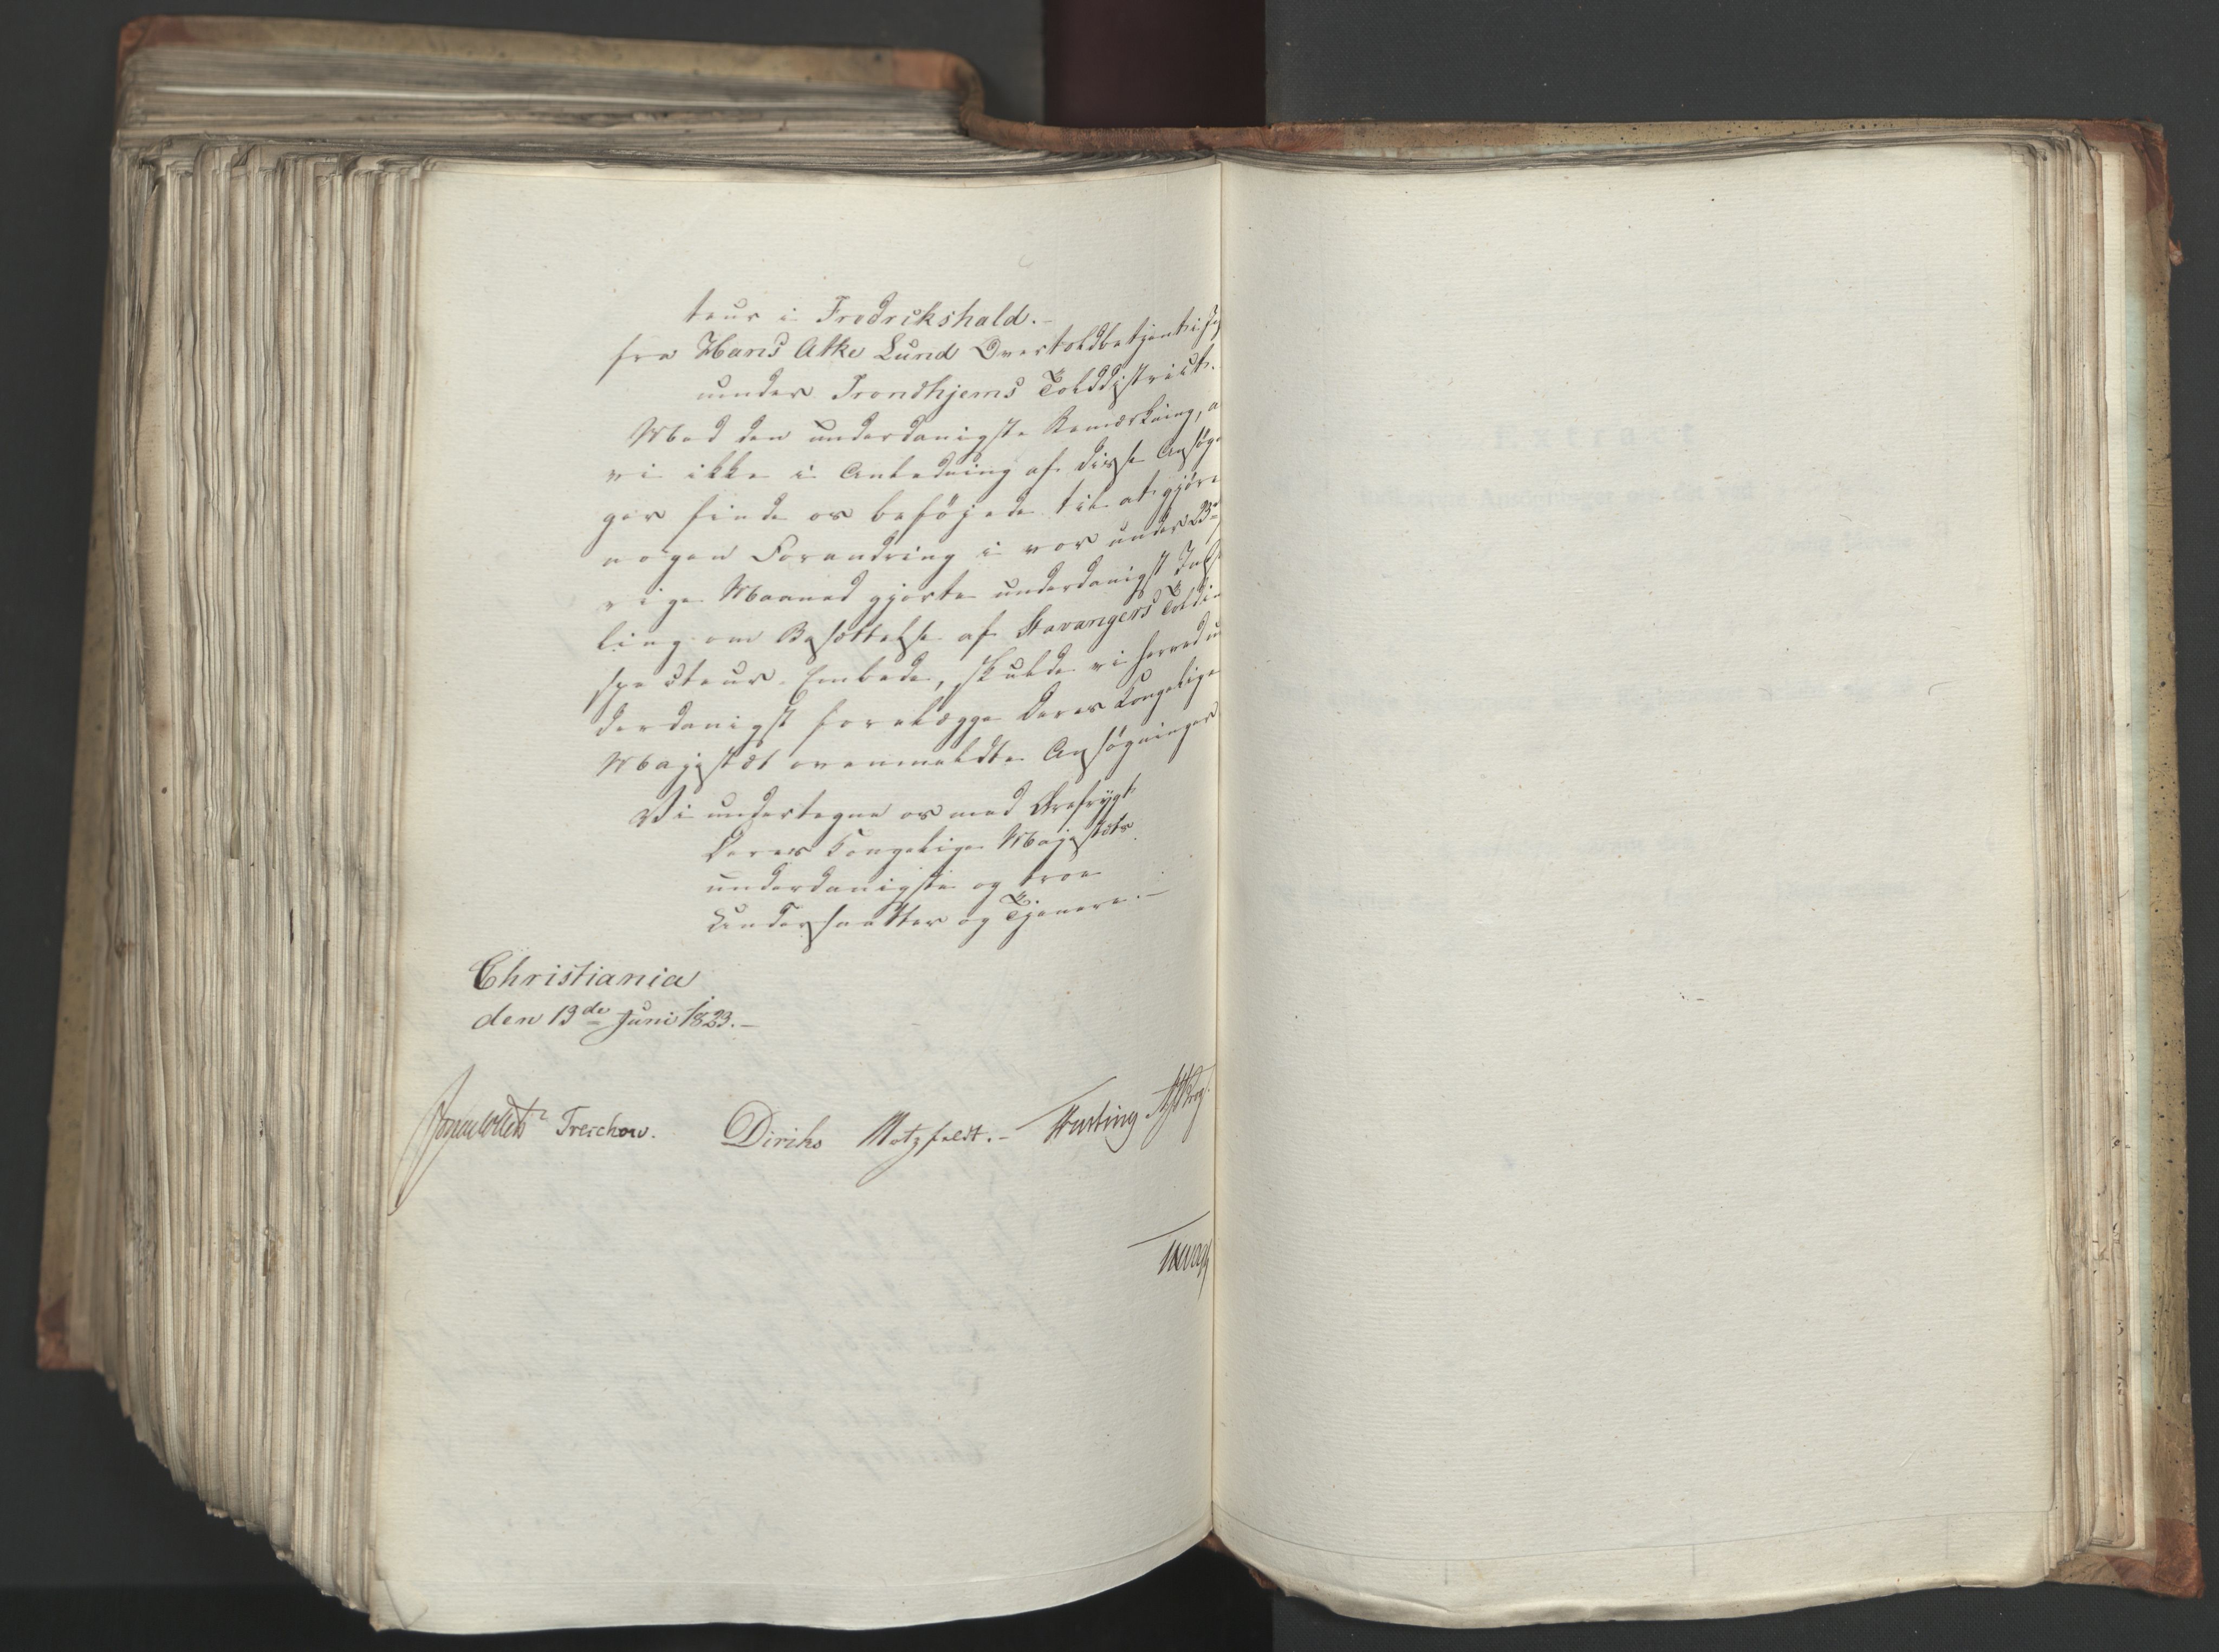 teur i Fredrikshald.-
fra Hans Atke Lund Overtoldbetjent i
under Trondhjems Tolddistrict.
Med den underdanigste Bemærkning, a
vi ikke i Anledning af disse Ansög
ger finde os beföjede til at gjöre
nogen Forandring i vor under
rige Maaned gjorte underdanigst Indst
ling om Besættelse af Stavangers Toldin
specteur-Embede, skulde vi herved un
derdanigst forelægge Deres Kongelige
Majestæt ovenmeldte Ansögninger
Vi undertegne os med Ærefrygt
Deres Kongelige Majestæts
underdanigste og troe
Undersaatter og Tjenere.-
Christiania
den 13de Juni 1823.-
Jonas Collett Treschow. Diriks Motzfeldt.- Fasting Krog